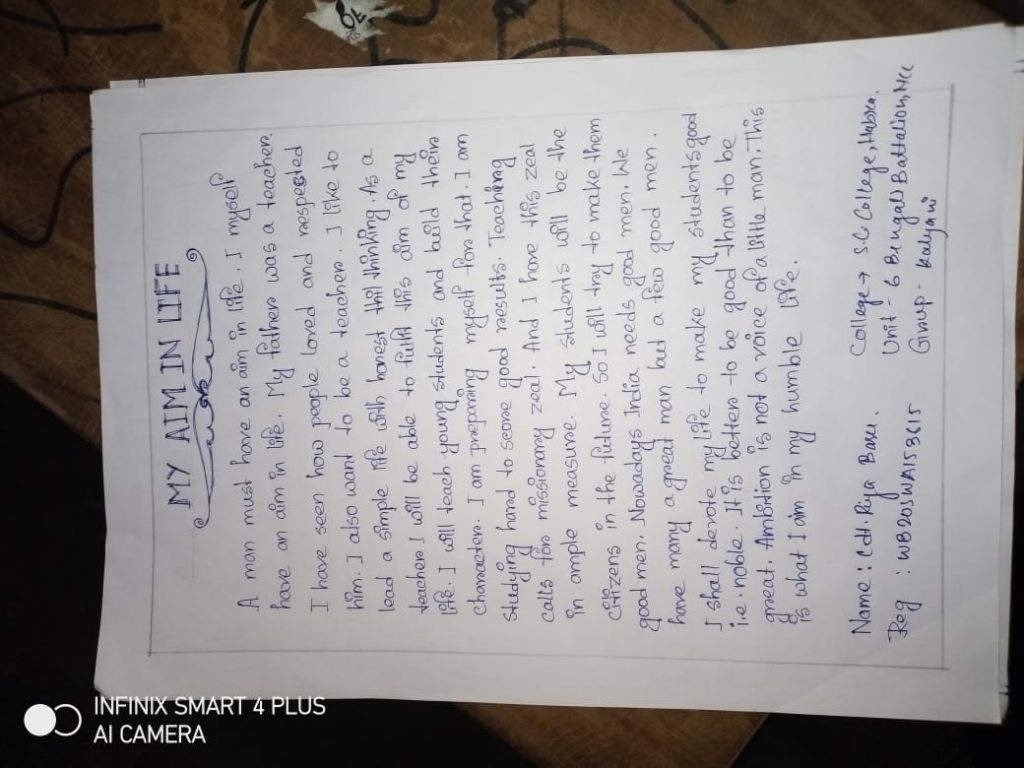 MY AIM IN LIFE
A man must have an aim in life. I myself
have an aim in life. My father was a teacher.
I have seen how people loved and respected
him. I also want to be a teacher. I like to
lead a simple life with honest thinking. As a
teacher I will be able to fulfil this aim of my
life. I will teach young students and build their
character. I am preparing myself for that. I am
studying hard to score good results. Teaching
calls for missionary zeal. And I have this zeal
in ample measure. My students will be the
citizens in the future. So I will try to make them
good men. Nowadays India needs good men. We
have many a great man but a few good men.
I shall devote my life to make my students good
i.e. noble. It is better to be good than to be
great. Ambition is not a voice of a little man. This
is what I aim in my humble life.
Name : Cdt. Riya Basu.
Reg : WB20SWA153615
College → S.C College, Habra.
Unit - 6 Bengal Battalion, NCC
Group - Kalyani
INFINIX SMART 4 PLUS
AI CAMERA